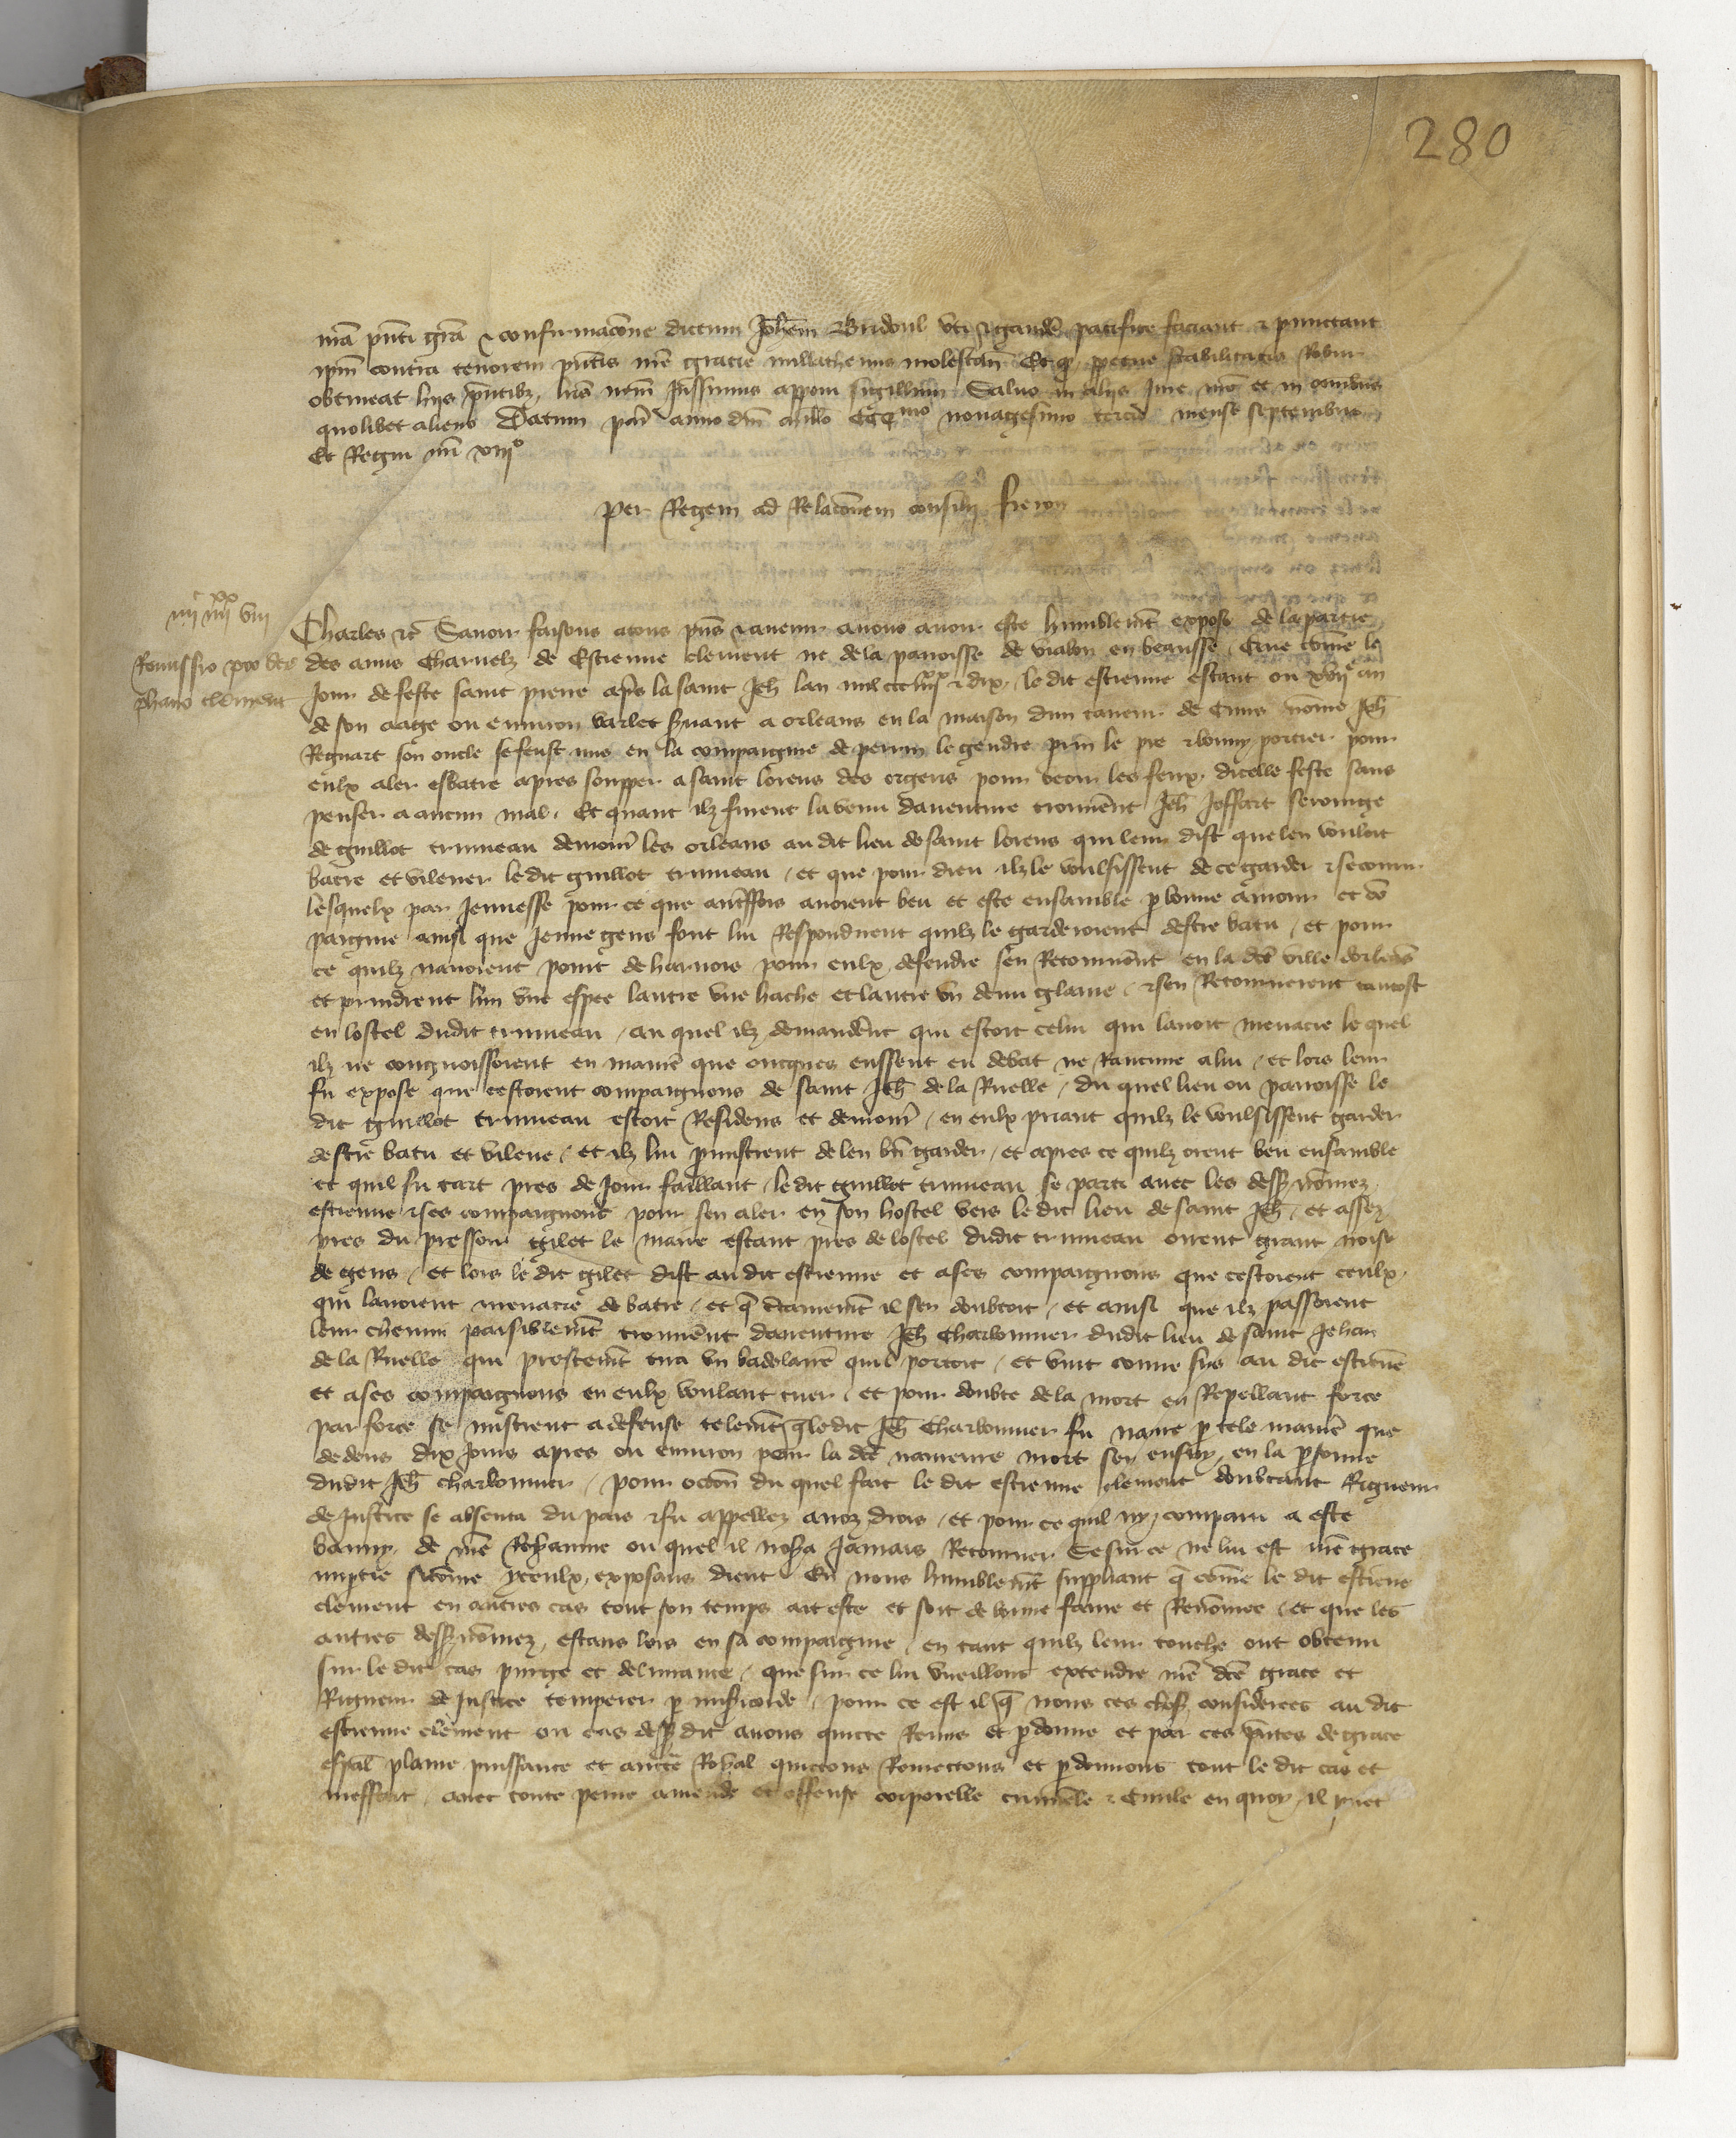 280
nrā pn̄ti grā & confirmacōne dictum Joh̄em Burdoul uti & gaudē pacifice faciant & permittant
ip̄m contra tenorem pn̄tis nr̄e gracie nullathenus molestan̄ Et q̄ perpetue stabilitatis Robur
obtineat hiis pn̄tibȝ lrīs nr̄m Jussimus apponi sigillum Saluo in alijs Jure nr̄o et in omībus
quolibet alieno Datum par̄ anno dn̄i mill̄o CCCmo nonagesimo tercio mense septembris
Et Regni nr̄i xiiijo
Per Regem ad Relacōnem consilij Freron
iiijc iiijxx viij
Remissio pro Ste
phano clement
Charles &c̄ Sauoir faisons atous pn̄s & auenir anous auoir este humblemt̄ expose de la partie
des amis Charnelz de Estienne clement ne de la parroisse de viabon en beausse Que cōme le
Jour de feste saint pierre ap̄s la saint Jeh̄ lan mil ccc iiijxx & dix, le dit estienne estant ou xviije an
de son aage ou enuiron varlet s̄uant a orleans en la maison dun taneur de Cuirs nōme Jeh̄
Regnart son oncle se feust mis en la compaignie de perrin le gendre prin̄ le pre & bonny portier pour
eulx aler esbatre apres soupper a saint lorens des orgeris pour veoir les feux dicelle feste sans
penser a aucun mal. Et quant ilz furent la venu dauenture trouuer̄nt Jeh̄ Joffart serourge
de guillot truneau demour̄ les orleans au dit lieu de saint lorens qui leur dist que len vouloit
batre et vilener le dit guillot truneau / et que pour dieu ilz le voulsissent de ce garder & secourir
lesquelx par Jeunesse pour ce que autresfois auoient beu et este ensamble p̄ bonne amour et cō
paignie ainsi que Jeune gens font lui Respondirent quilz le garderoient destre batu / et pour
ce quilz nauoient point de harnois pour eulx defendre sen Retournēnt en la dc̄e ville dorleās
et prindrent lun vne espee lautre vne hache et lautre vn demi glaiue / & sen Retournerent tantost
en lostel dudit truneau / au quel ilz demandēnt qui estoit celui qui lauoit menacie le quel
ilz ne congnoissoient en maniē que oncques eussent eu debat ne Rancune a lui / et lors leur
fu expose que cestoient compaignons de saint Jeh̄ de la Ruelle / du quel lieu ou parroisse le
dit guillot truneau estoit Residens et demour̄ / en eulx priant quilz le voulsissent garder
destre batu et vilene / et ilz lui p̄mistrent de len bn̄ garder / et apres ce quilz orent beu ensamble
et quil fu tart pres de Jour faillant le dit guillot truneau se parti auec les dess' nōmez
estienne & ses compaignons pour sen aler en son hostel vers le dit lieu de saint Jeh̄ / et assez
pres du pressoir gilet le maire estant pres de lostel dudit truneau oirent grant noise
de gens / et lors le dit gilet dist au dit estienne et a ses compaignons que cestoient ceulx
qui lauoient menacie de batre / et q̄ c̄tainemt̄ il sen doubtoit / et ainsi que ilz passoient
leur chemin paisiblemt̄ trouuēnt dauenture Jeh̄ Charbonnier dudit lieu de saint Jehan
de la Ruelle qui prestemt̄ tira vn badelaire quil portoit / et vint courre sus au dit estiēne
et a ses compaignons en eulx voulant tuer / et pour doubte de la mort en Repellant force
par force se mistrent a defense telemt̄ q̄ le dit Jeh̄ Charbonnier fu naure p̄ tele maniē que
dedens dix Jours apres ou enuiron pour la dc̄e naureure mort sen ensuy en la p̄sonne
dudit Jeh̄ charbonnier / pour occōn du quel fait le dit estienne clement doubtant Rigueur
de Justice se absenta du pais & fu appellez anoz drois / et pour ce quil ny comparu a este
banny de nr̄e Royaume ou quel il nos̄a Jamais Retourner se sur ce ne lui est nr̄e grace
imptie sicōme yceulx exposans dient En nous humblemt̄ suppliant q̄ cōme le dit estiēne
clement en autres cas tout son temps ait este et soit de bonne fame et Renōmee / et que les
autres dess' nōmez, estans lors en sa compaignie / en tant quilz leur touche ont obtenu
sur le dit cas purge et deliurance / que sur ce lui vueillons extendre nr̄e dc̄e grace et
Rigueur de Justice temperer p̄ mis̄icorde / pour ce est il q̄ nous ces choses considerees au dit
estienne clement ou cas dess' dit auons quicte Remis et p̄donne et par ces pn̄tes de grace
esp̄al plaine puissance et aucte Royal quictons Remectons et p̄donnons tout le dit cas et
meffait / auec toute peine amende et offense corporelle criminēle & Ciuile en quoy il puet